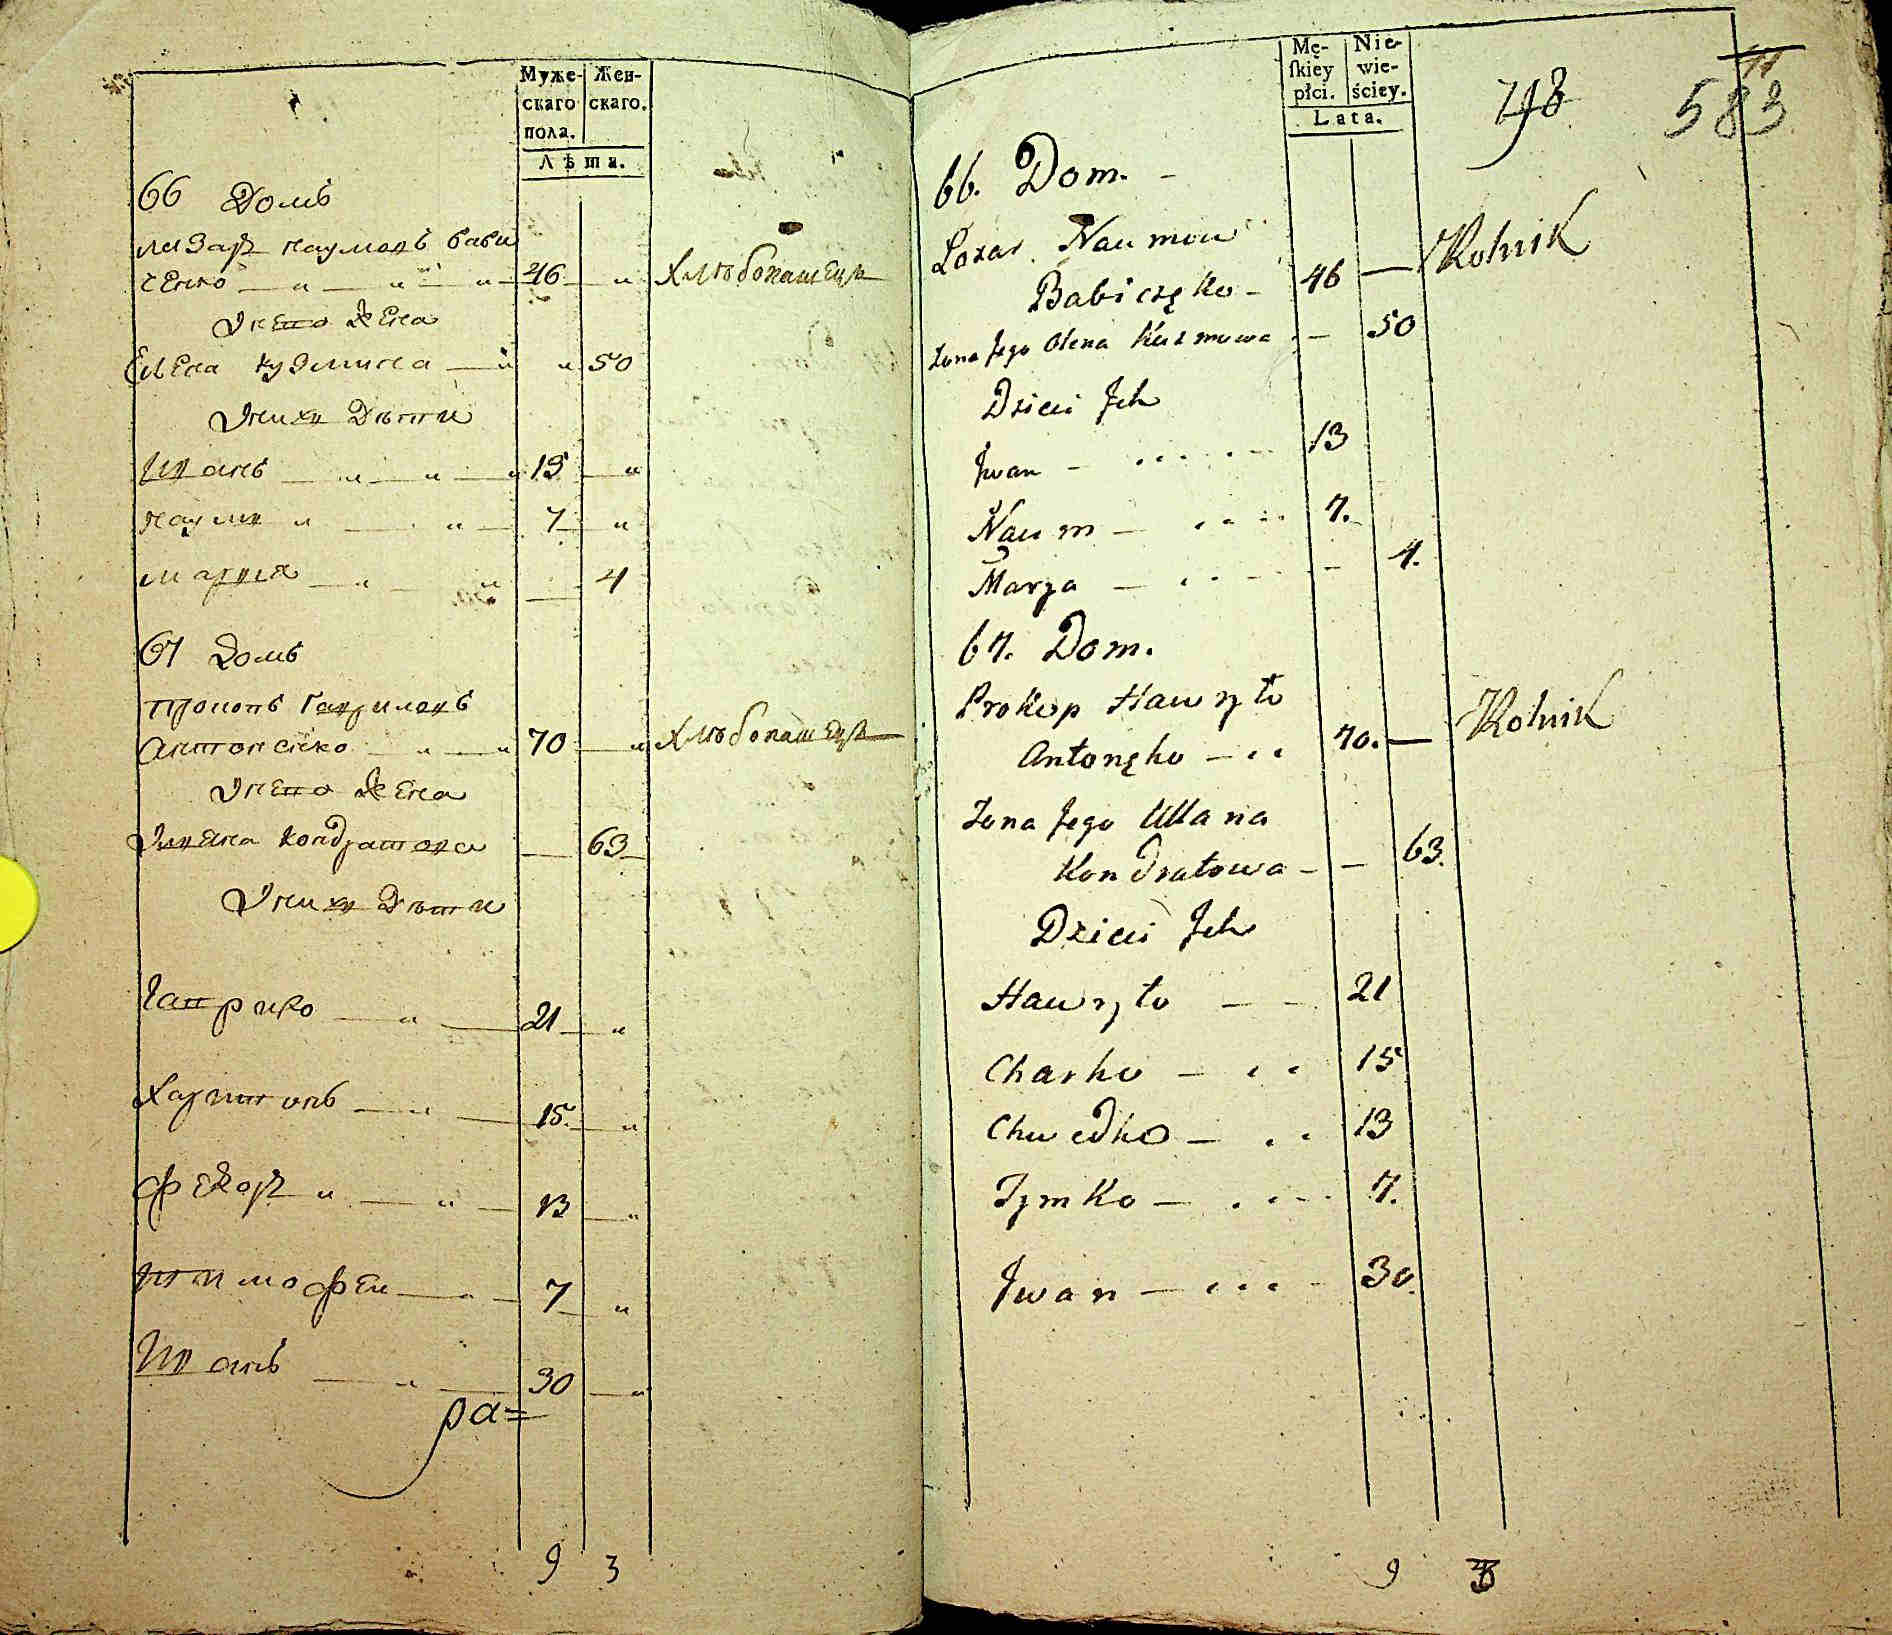 Муже-
скаго
пола.
Жен-
скаго.
Лѣта.
66 Домъ
Лазар Наумовъ Баби
ченко 46 Хлюбопашецъ
У него жена
Елена Кузмина 50
У них дѣти
Иванъ 13
Наумъ 7
Мария 4
67 Домъ
Прокопъ Гавриловъ
Антоненко 70 Хлюбопашецъ
У него жена
Кондратова 63
У них дѣти
Гаврило 21
Харитонъ 15.
Федоръ 13
Тимофеи 7
Иванъ 30
ра=
9 3
Mę-
ſkiey
płci.
Nie-
wie-
ściey.
Lata.
583
66. Dom.
Łazar Naumow
Babiczęko 46 Rolnik
Żona Jego Olena Kuzmowa 50
Dzieci Jch
Jwan 13
Naum 7.
Marya 4.
67. Dom.
Prokop Hawryło
Antonęko 70. Rolnik
Żona Jego Ullana
Kondratowa 63.
Dzieci Jch
Hawryło 21
Charko 15
Chwedko 13
Tymko 7.
Jwan 30.
9 3